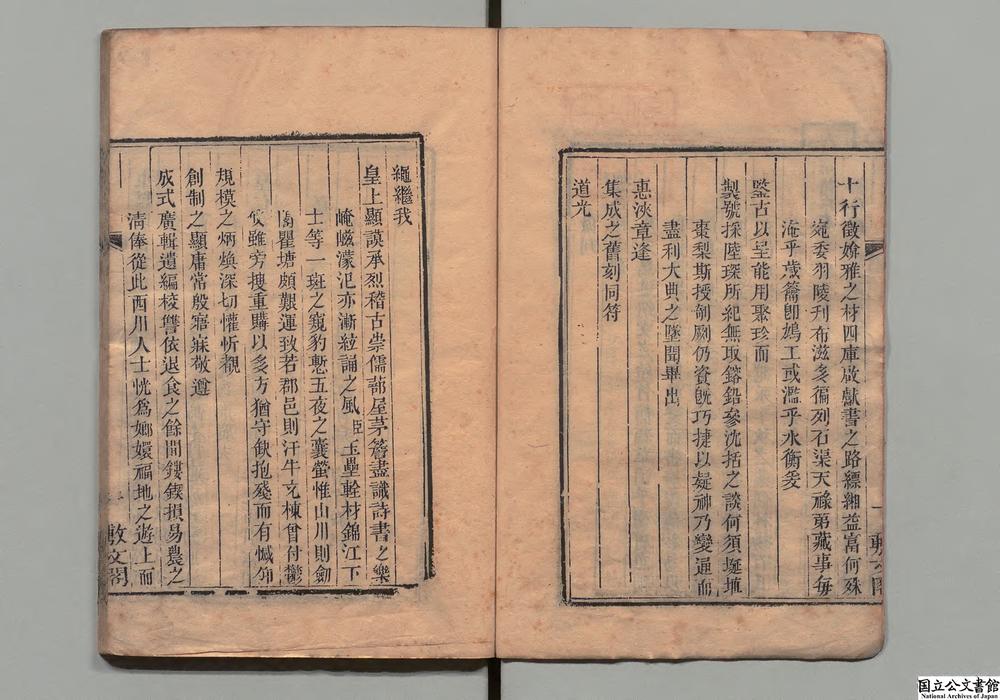 十行徵媕雅之材四庫啟獻書之路縹緗益富何殊
宛委羽陵刋布滋多徧列石渠天祿第藏事每
淹乎歲籥卽鳩工或濫乎水衡爰
鑒古以呈能用聚珍而
製號採陸琛所紀無取鎔鉛參沈括之談何須埏埴
棗梨斯授剞劂仍資旣巧捷以疑神乃變通而
盡利大典之墜聞畢出
惠浹章逢
集成之舊刻同符
道光
繩繼我
皇上顯謨承烈稽古崇儒蔀屋茅簷盡識詩書之樂
崦嵫濛汜亦漸絃誦之風臣玉壘輇材錦江下
士等一斑之窺豹慙五夜之囊螢惟山川則劒
閣瞿塘頗艱運致若郡邑則汗牛充棟曾付鬱
攸雖旁搜重購以多方猶守缺抱殘而有憾仰
規模之炳煥深切懽忻覩
創制之顯庸常殷寤寐敬遵
成式廣輯遺編校讐依退食之餘間鏤鍥損易農之
淸俸從此西川人士恍爲嫏嬛福地之遊上而
敷文閣
国立公文書館
National Archives of Japan